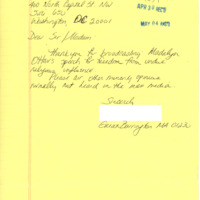 400 North Capitol St. NW
Suite 650
Washington DC 20001
APR 30 1989
MAY 04 1989
Dear Sir/Madam
Thank you for broadcasting Madalyn
O'Hair's speech for freedom from undue
religious influence.
Please air other minority opinions
normally not heard in the main media.
Sincerely
Great Barrington MA 01230